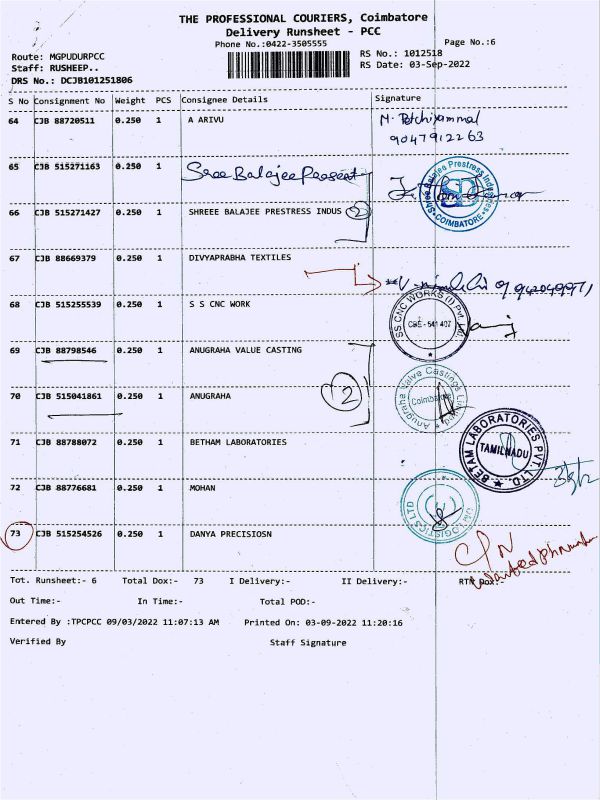 THE PROFESSIONAL COURIERS, Coimbatore
Delivery Runsheet - PCC
Phone No.:0422-3505555
Page No.:6
Route: MGPUDURPCC
RS No.: 1012518
Staff: RUSHEEP..
RS Date: 03-Sep-2022
DRS No.: DCJB101251806
S No Consignment No Weight PCS Consignee Details Signature
64 CJB 88720511 0.250 1 A ARIVU
M. Petchiyammal
9047912263
65 CJB 515271163 0.250 1 Sree Balajee Presest
Sree Balajee Prestress Industries
SB
COIMBATORE
66 CJB 515271427 0.250 1 SHREEE BALAJEE PRESTRESS INDUS 2
67 CJB 88669379 0.250 1 DIVYAPRABHA TEXTILES
68 CJB 515255539 0.250 1 S S CNC WORK
SS CNC WORKS (I) Pvt. Ltd.
CBE - 641 407
69 CJB 88798546 0.250 1 ANUGRAHA VALUE CASTING
2
70 CJB 515041861 0.250 1 ANUGRAHA
Anugraha Valve Castings Limited
Coimbatore
71 CJB 88788072 0.250 1 BETHAM LABORATORIES
BETAM LABORATORIES PVT. LTD.
TAMILNADU
72 CJB 88776681 0.250 1 MOHAN
LOGISTICS LTD
73 CJB 515254526 0.250 1 DANYA PRECISIOSN
Tot. Runsheet:- 6 Total Dox:- 73 I Delivery:- II Delivery:- RTN Dox:-
Out Time:- In Time:- Total POD:-
Entered By :TPCPCC 09/03/2022 11:07:13 AM Printed On: 03-09-2022 11:20:16
Verified By Staff Signature